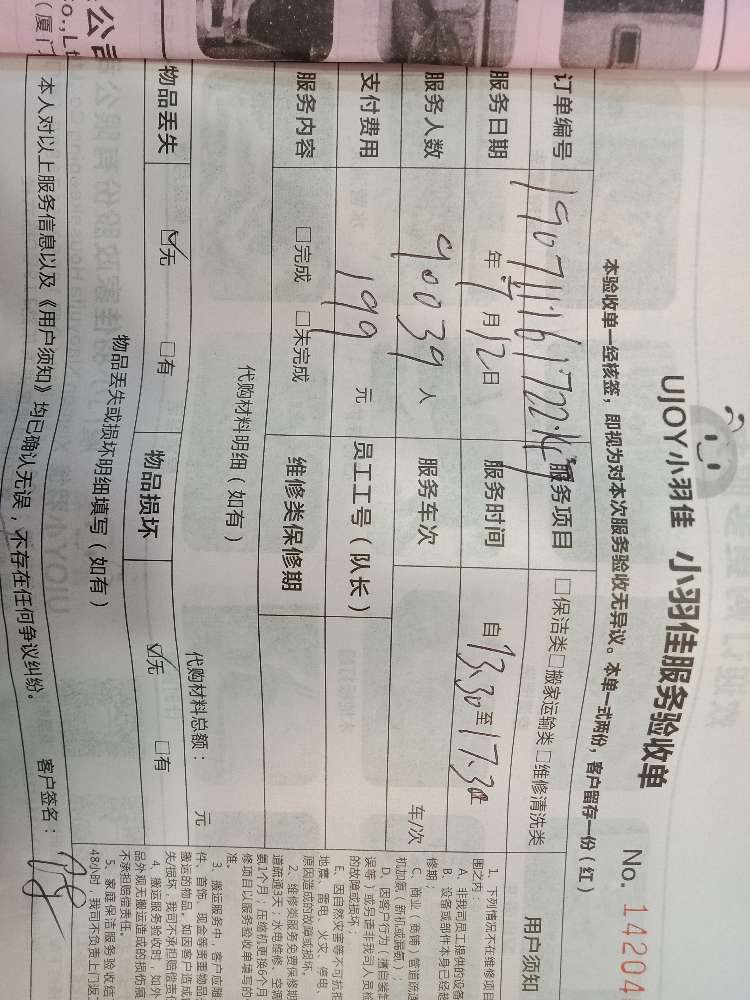 UJOY小羽佳 小羽佳服务验收单
No. 14204
本验收单一经核签，即视为对本次服务验收无异议。本单一式两份，客户留存一份（红）
订单编号
服务项目 □保洁类□搬家运输类□维修清洗类
服务日期 年 7月12日 服务时间 自13.30至17.30
服务人数 90039人 服务车次 车/次
支付费用 199 元 员工工号（队长）
服务内容 □完成 □未完成 维修类保修期
代购材料明细（如有） 代购材料总额： 元
物品丢失 ☑无 □有 物品损坏 ☑无 □有
物品丢失或损坏明细填写（如有）
本人对以上服务信息以及《用户须知》均已确认无误，不存在任何争议纠纷。 客户签名：
用户须知
1、下列情况不在维修项目
围之内
A、非我司员工提供的设备
B、设备或部件本身已经
修期；
C、商业（商铺）管道疏通
D、因客户行为（擅自装
误等）或另请非我司人员
的故障或损坏；
E、因自然灾害等不可抗
地震、雷电、火灾、停电、
原因造成的故障或损坏。
2、维修类服务免费保修期
道疏通5天；水电维修、空调
氨1个月；压缩机更换6个月
修项目以服务验收单填写的
准。
3、搬运服务中，客户应随
件、首饰、现金等贵重物品
搬运的物品。如因客户造成
失/损坏，我司不承担赔偿责
4、搬运服务验收时，如外
品外观无搬运造成的损伤痕
不承担赔偿责任。
5、家庭保洁服务验收结
48小时，我司不负责上门返
公司
Co.,Lt
（厦门